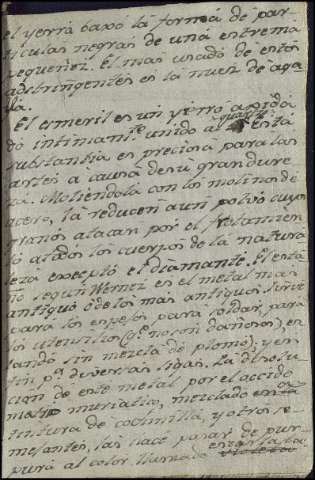 el yerro baxo la forma de par-
ticulas negras de una extrema
pequeñez. El mas usado de estos
adstringentes es la nuez de aga-
lla.
El esmeril es un yerro oxida
do intimam.te unido al quartz. esta
substancia es preciosa para las
artes a causa de su grandure
za. Moliendola con los molinos de
acero, la reducen a un polvo cuyos
granos atacan por el frotamien
to a todos los cuerpos de la natura
leza excepto el diamante. El esta
ño segun Werner es el metal mas
antiguo ò de los mas antiguos. Sirve
para los espejos para soldar, para
los utensilios (q.e no son dañosos) es
tando sin mezcla de plomo) y en
fin p.a diversas ligas. La disolu
cion de este metal por el accido
muriatico, mezclado en la
tintura de cochinilla, y otros se-
mejantes, las hace pasar de pur-
pura al color llamado escarlata
violeta